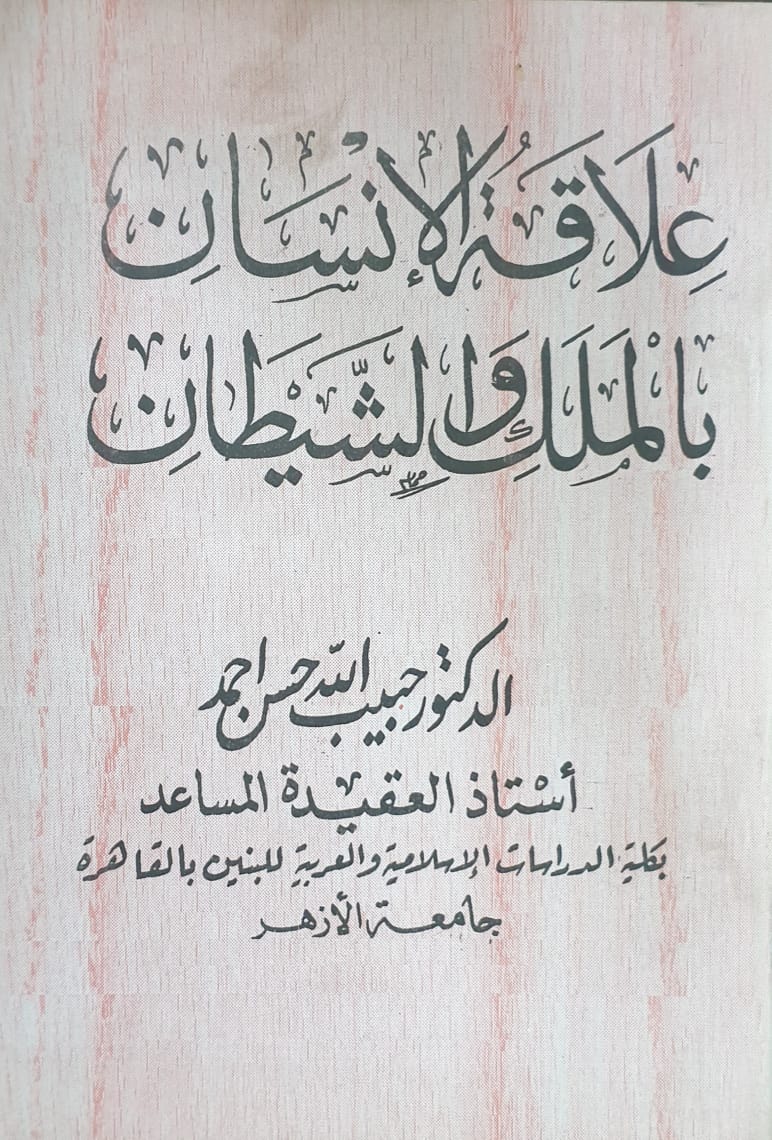 عِلَاقَةُ الإِنْسَانِ
بِالْمَلَكِ وَالشَّيْطَانِ
الدكتور حبيب الله حسن احمد
أسْتاذ العقيدة المساعد
بكلية الدراسات الإسلامية والعربية للبنين بالقاهرة
جامعة الأزهر